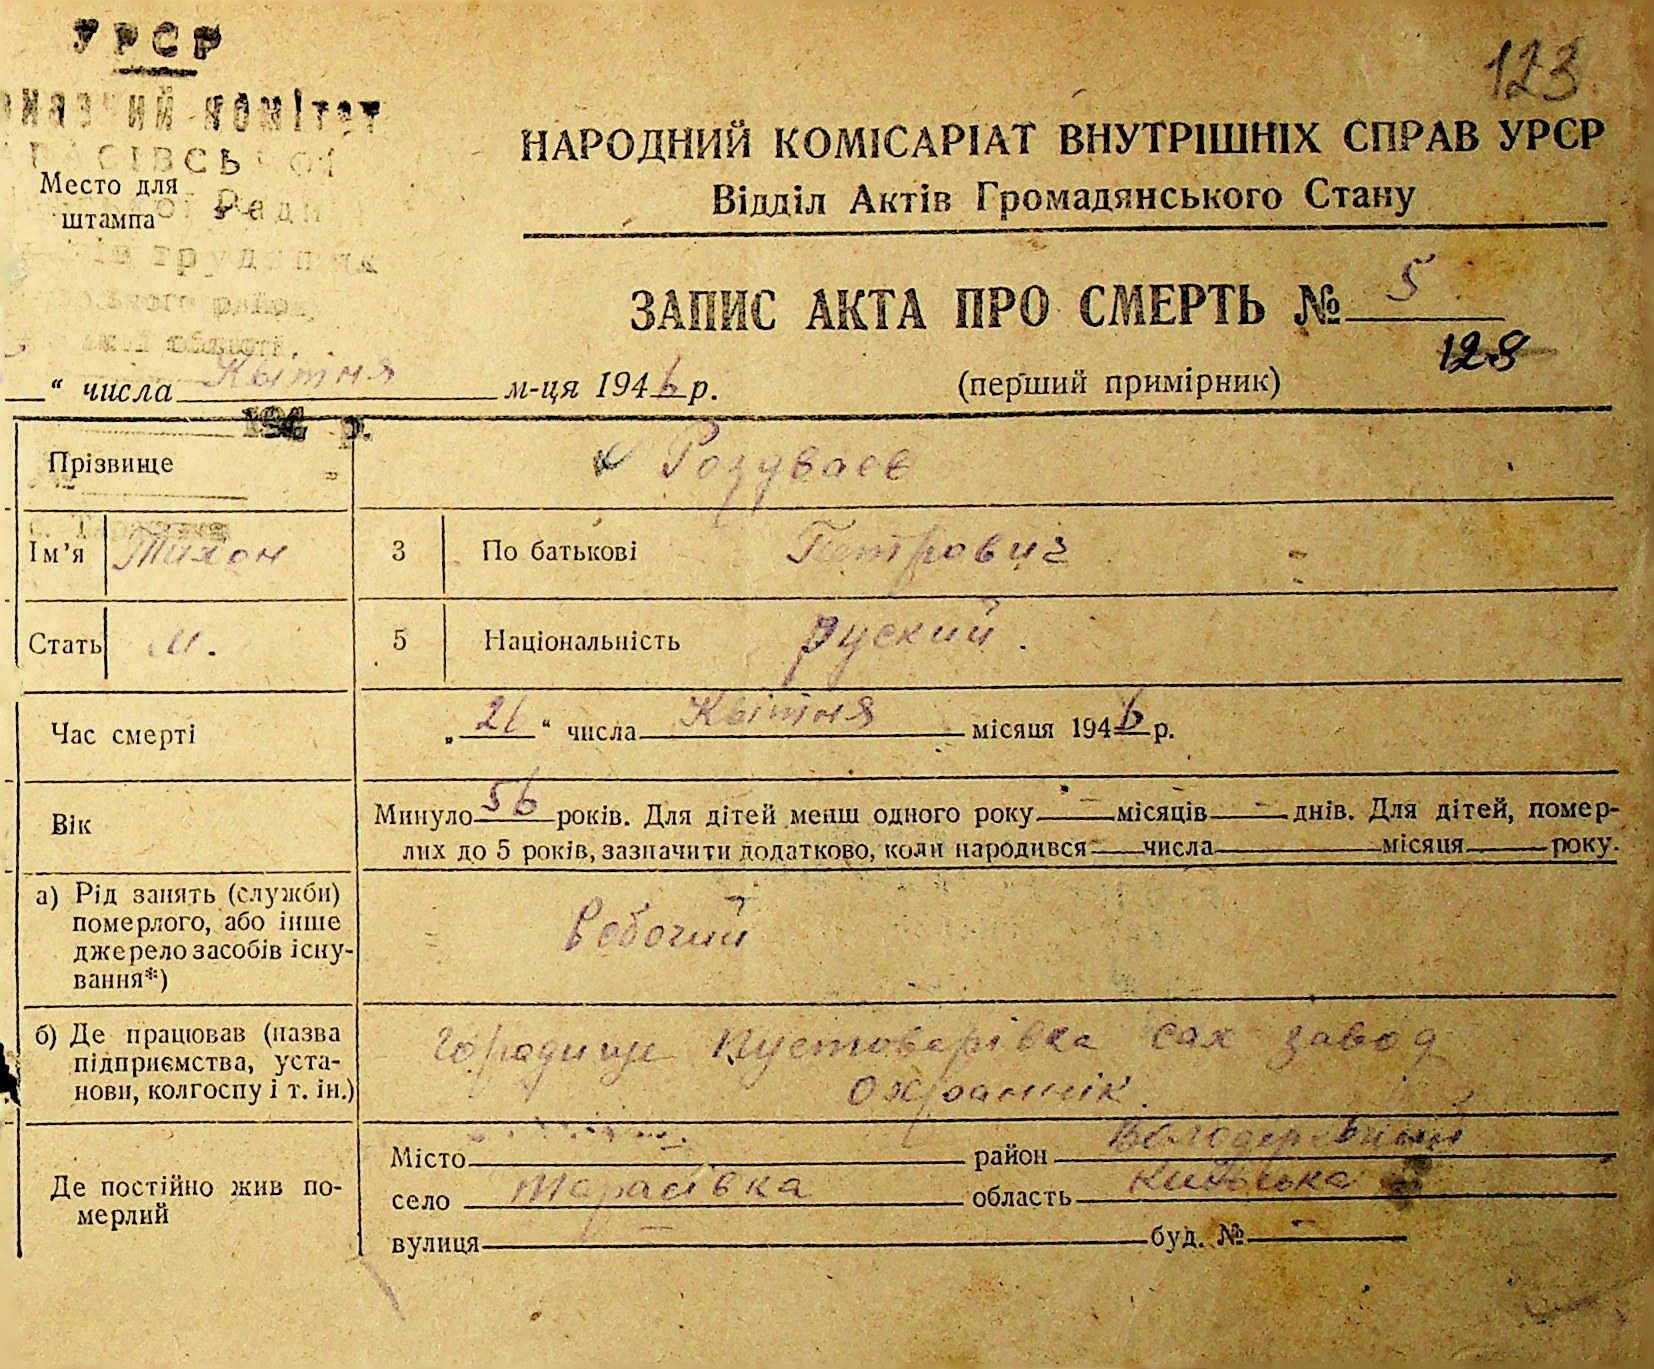 УРСР
123
комітет
НАРОДНИЙ КОМІСАРІАТ ВНУТРІШНІХ СПРАВ УРСР
Відділ Актів Громадянського Стану
Место для
штампа
ЗАПИС АКТА ПРО СМЕРТЬ № 5
128
“ числа Квітня м-ця 1946 р.
(перший примірник)
194 р.
Прізвище Родуваєв
Ім’я Тихон 3 По батькові Петрович
Стать М. 5 Національність руский.
Час смерті „26“ числа Квітня місяця 1946 р.
Вік Минуло 56 років. Для дітей менш одного року - місяців - днів. Для дітей, помер-
лих до 5 років, зазначити додатково, коли народився числа місяця року.
а) Рід занять (служби)
померлого, або інше
джерело засобів існу-
вання*)
Робочий
б) Де працював (назва
підприємства, уста-
нови, колгоспу і т. ін.)
Городище Пустоварівка сах завод
Охранник
Де постійно жив по-
мерлий
Місто район Володарський
село Тарасівка область Київська
вулиця буд. № -